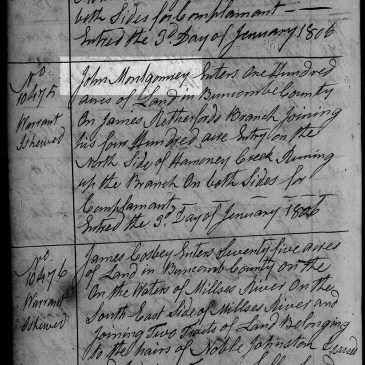 both Sides for Complamant
Entred the 3d Day of Jenuary 1806
No
10475
Warrant
Ishewed
John Montgomrey Enters One Hundred
acres of Land in Buncombe County
On James Retherfords Branch Joining
his four Hundred acre Entry on the
North Side of Hamoney Creek Runing
up the Branch On both Sides for
Complamant
Entred the 3d Day of Jenuary 1806
No
10476
Warrant
Ishewed
James Cosbey Enters Seventy five acres
of Land in Buncombe County on the
On the Waters of Millses River On the
South East Side of Millses River and
Joining Two Tracts of Land Belonging
to the hairs of Noble Johnston